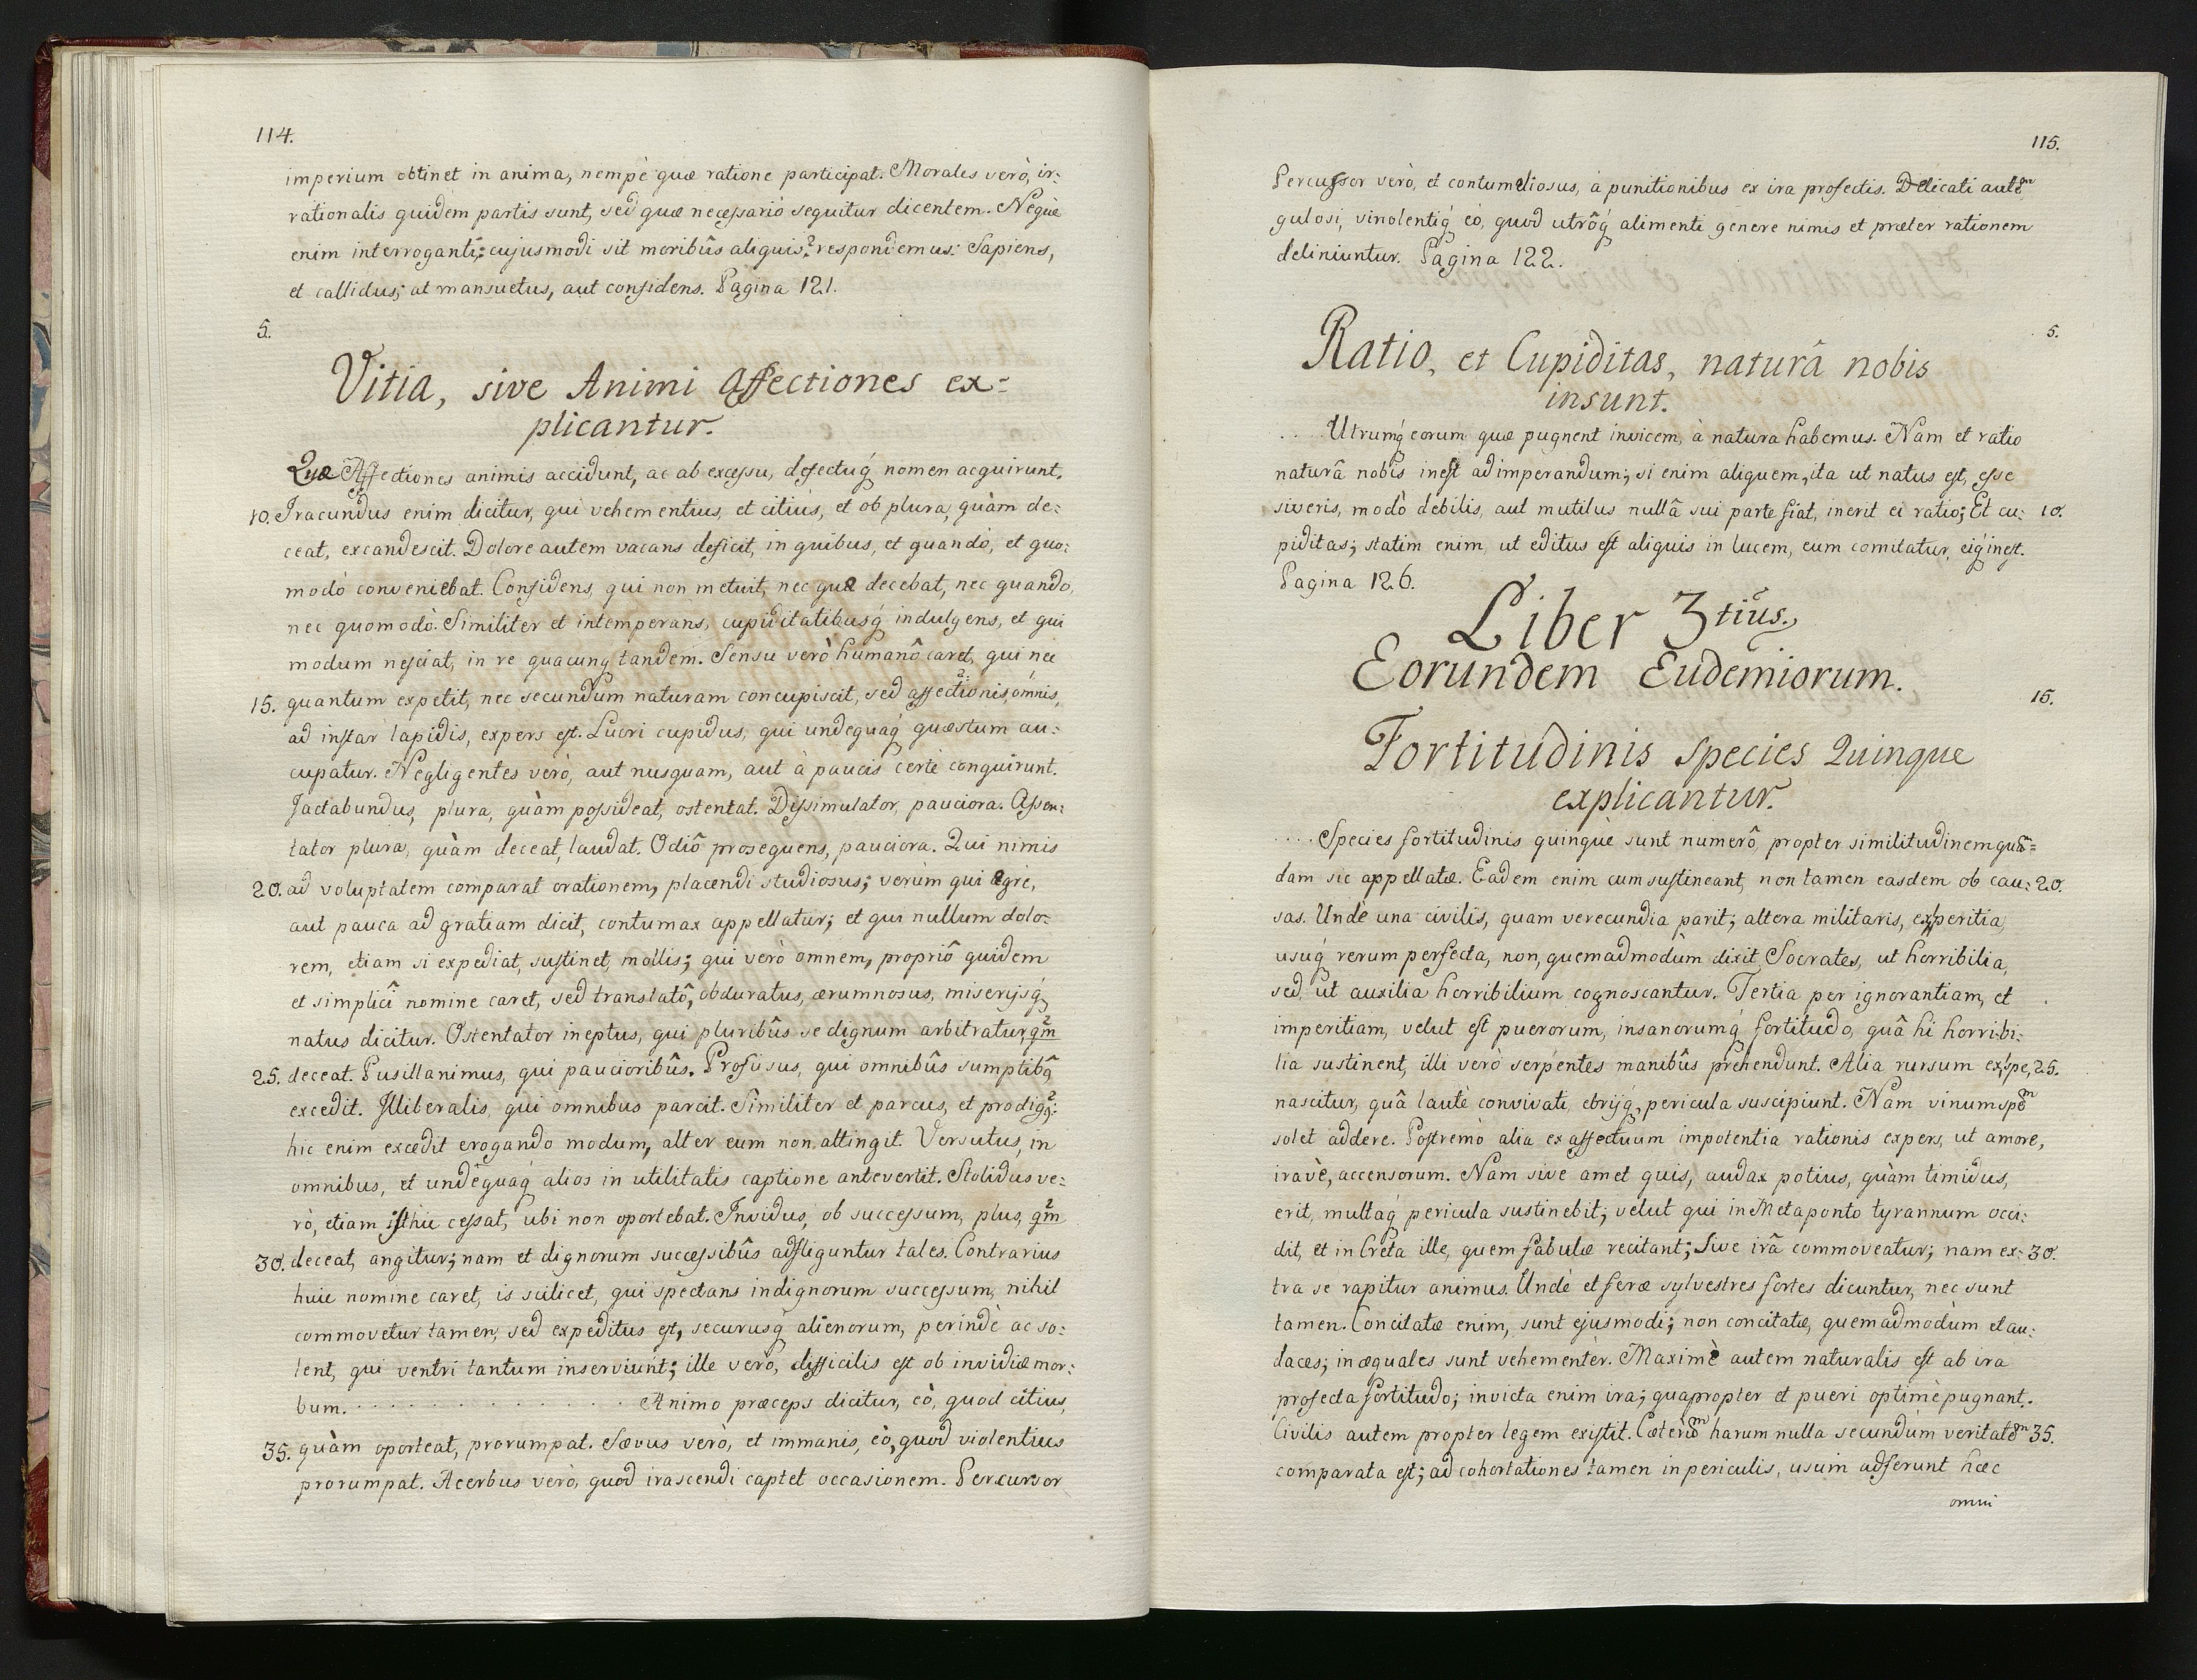 114.
imperium obtinet in anima, nempè quæ ratione participat. Morales verò, ir:
rationalis quidem partis sunt, sed quæ necessariò sequitur dicentem. Neque
enim interroganti; cujusmodi sit moribûs aliquis? respondemus: Sapiens,
et callidus; at mansuetus, aut confidens. Pagina 121.
5.
Vitia, sive Animi Affectiones ex=
plicantur.
Quæ Affectiones animis accidunt, ac ab excessu, defectuq́ nomen acquirunt.
10. Iracundus enim dicitur, qui vehementius, et citiùs, et ob plura, quàm de:
ceat, excandescit. Dolore autem vacans deficit, in quibus, et quandò, et quo:
modò conveniebat. Confidens, qui non metuit, nec quæ decebat, nec quando,
nec quomodò. Similiter et intemperans, cupiditatibusq́ indulgens, et qui
modum nesciat, in re quacunq tandem. Sensu verò humanô caret, qui nec
15. quantum expetit, nec secundum naturam concupiscit, sed affectionis, ómnis,
ad instar lapidis, expers est. Lucri cupidus, qui undequaq́ quæstum au:
cupatur. Negligentes verò, aut nusquam, aut à paucis certè conquirunt.
Jactabundus, plura, quàm possideat, ostentat. Dissimulator, pauciora. Assen:
tator plura, quàm deceat, laudat. Odiô prosequens, pauciora. Qui nimis
20. ad voluptatem comparat orationem, placendi studiosus; verùm qui ægre,
aut pauca ad gratiam dicit, contumax appellatur; et qui nullum dolo:
rem, etiam si expediat, sustinet, mollis; qui verò omnem, propriô quidem
et simplicî nomine caret, sed translatô, obduratus, ærumnosus, miserijsq́
natus dicitur. Ostentator ineptus, qui pluribûs se dignum arbitratur, qm̃
25. deceat. Pusillanimus, qui paucioribûs. Profusus, qui omnibûs sumptibq̃
excedit. Illiberalis, qui omnibus parcit. Similiter et parcus, et prodigq̃:
hic enim excedit erogando modum, alter eum non attingit. Versutus, in
omnibus, et undèquaq́ alios in utilitatis captione antevertit. Stolidus ve:
rò, etiam isthic cessat, ubi non oportebat. Invidus, ob successum, plus, qm̃
30. deceat, angitur; nam et dignorum successibûs adfliguntur tales. Contrarius
huic nomine caret, is scilicet, qui spectans indignorum successum, nihil
commovetur tamen, sed expeditus est, securusq́ alienorum, perindè ac so:
lent, qui ventri tantum inserviunt; ille verò, difficilis est ob invidiæ mor:
bum. . . . . . . . . . . . . . . Animo præceps dicitur, eò, quod citius,
35. quàm oporteat, prorumpat. Sævus verò, et immanis, eò, quod violentius
prorumpat. Acerbus verò, quod irascendi captet occasionem. Percursor
115.
Percussor verò, et contumeliosus, à punitionibus ex ira profectis. Delicati autẽm
gulosi, vinolentiq́ eò, quod utrôq́ alimenti genere nimis et præter rationem
deliniuntur. Pagina 122.
5.
Ratio, et Cupiditas, naturâ nobis
insunt.
. . Utrumq́ eorum quæ pugnent invicem, à natura habemus. Nam et ratio
naturâ nobis inest ad imperandum; si enim aliquem, ita ut natus est, esse
siveris, modò debilis, aut mutilus nullâ sui parte fiat, inerit ei ratio; Et cu: 10.
piditas; statim enim, ut editus est aliquis in lucem, eum comitatur, eiq́ inest.
Pagina 126.
Liber 3tiûs.
Eorundem Eudemiorum.
15.
Fortitudinis species Quinque
explicantur.
. . . . Species fortitudinis quinquè sunt numerô, propter similitudinem quã=
dam sic appellatæ. Eadem enim cum sustineant, non tamen easdem ob cau: 20.
sas. Undè una civilis, quam verecundia parit; altera militaris, experitia,
usuq́ rerum perfecta, non, quemadmodùm dixit Socrates, ut horribilia,
sed, ut auxilia horribilium cognoscantur. Tertia per ignorantiam, et
imperitiam, velut est puerorum, insanorumq́ fortitudo, quâ hi horribi:
lia sustinent, illi verò serpentes manibûs prehendunt. Alia rursum ex spe, 25.
nascitur, quâ lautè convivati, ebrijq́, pericula suscipiunt. Nam vinum spẽm
solet addere. Postremò alia ex affectuum impotentia rationis expers, ut amore,
iravè, accensorum. Nam sive amet quis, audax potius, quàm timidus,
erit, multaq́ pericula sustinebit; velut qui in Metaponto tyrannum occi:
dit, et in Creta ille, quem fabulæ recitant; Sive irâ commoveatur; nam ex: 30.
tra se rapitur animus. Undè et feræ sylvestres fortes dicuntur, nec sunt
tamen. Concitatæ enim, sunt ejusmodi; non concitatæ, quemadmodùm et au:
daces; inæquales sunt vehementer. Maximè autem naturalis est ab ira
profecta fortitudo; invicta enim ira; quapropter et pueri optimè pugnant.
Civilis autem propter legem existit. Cæterũm harum nulla secundùm veritatẽm 35.
comparata est; ad cohortationes tamen in periculis, usum adferunt hæc
omni